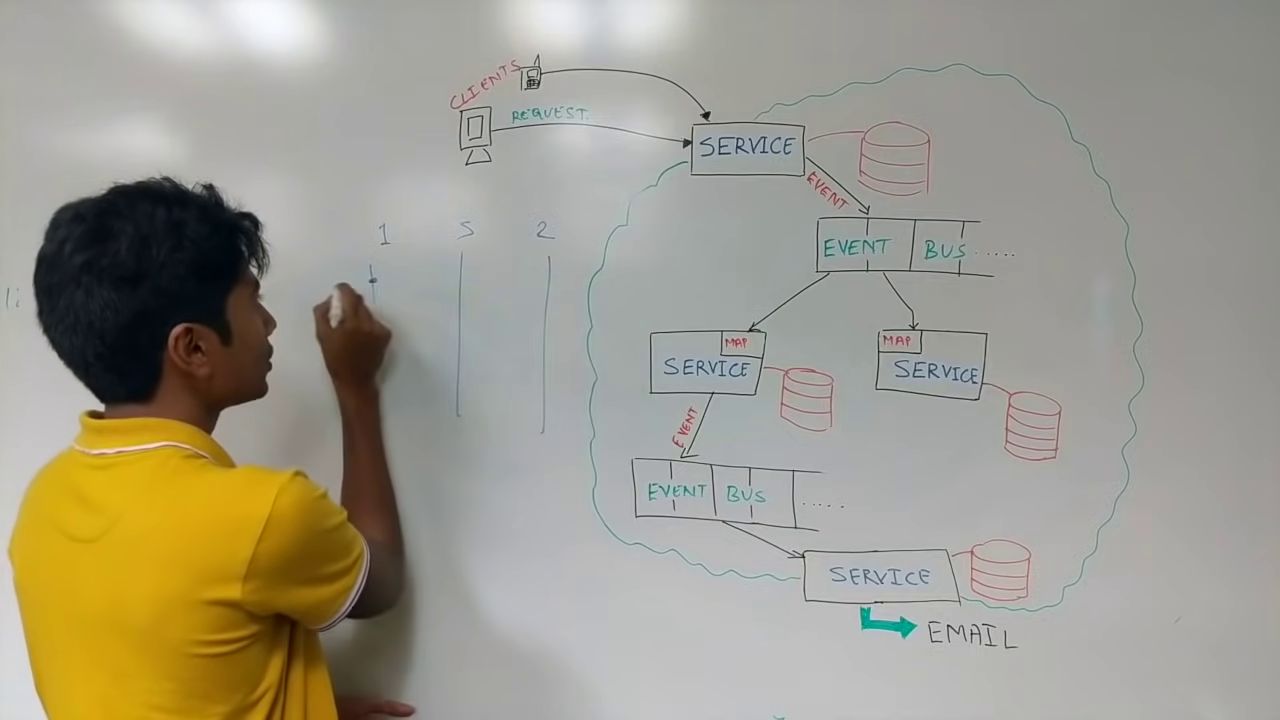 CLIENTS
REQUEST.
SERVICE
EVENT
1 S 2
EVENT BUS .....
MAP
SERVICE
MAP
SERVICE
EVENT
EVENT BUS .....
SERVICE
EMAIL